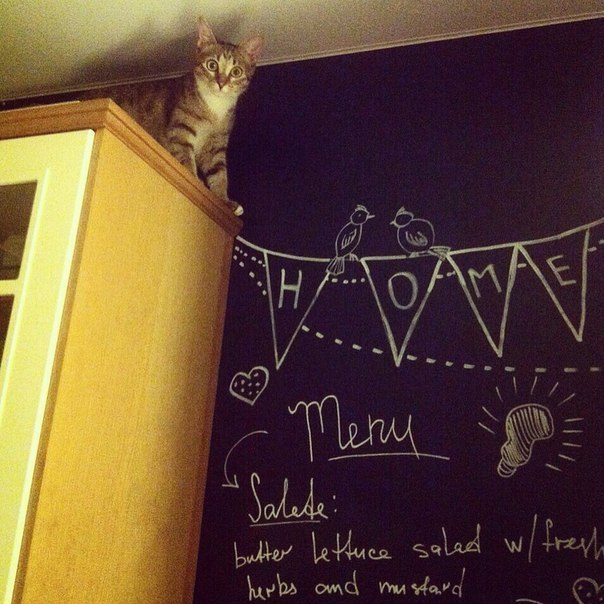 HOME
Menu
Salate:
butter lettuce salad w/fresh
herbs and mustard